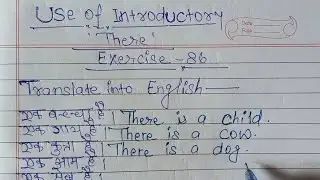 Use of Introductory
'There'
Exercise - 86
Translate into English —
एक बच्चा है। There is a child.
एक गाय है। There is a cow.
एक कुत्ता है। There is a dog.
एक आम है।
एक मेज है।